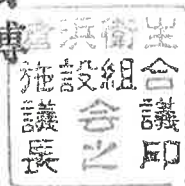 衛生
施設組合
議会議
長之印